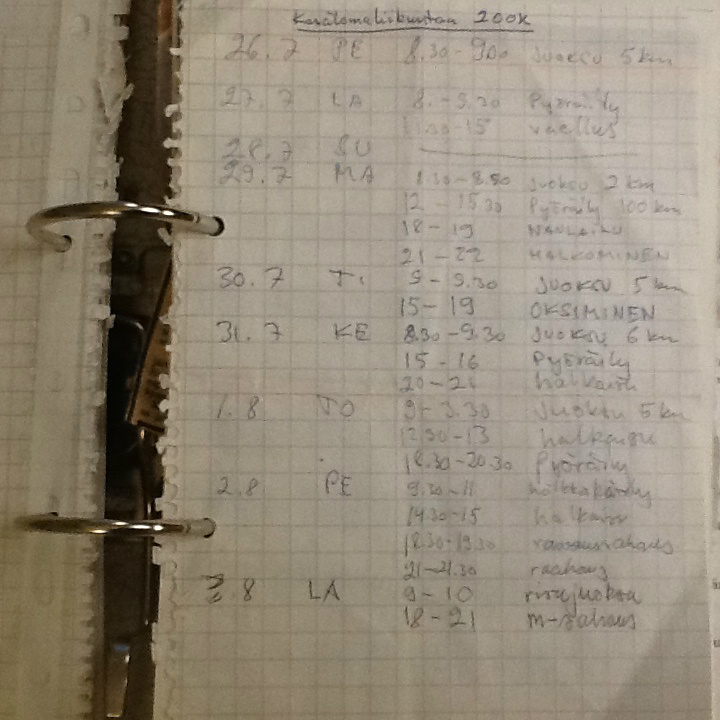 Kesälomaliikuntaa 200x
26.7 PE 8.30-9.00 Juoksu 5 km
27.7 LA 8.-9.30 Pyöräily
11.30-15 vaellus
28.7 SU
29.7 MA 8.30-8.50 Juoksu 2 km
12-15.30 Pyöräily 100 km
18-19 NAULAILU
21-22 HALKOMINEN
30.7 TI 9-9.30 JUOKSU 5 km
15-19 OKSIMINEN
31.7 KE 8.30-9.30 Juoksu 6 km
15-16 Pyöräily
20-21 halkaisu
1.8 TO 9-9.30 Juoksu 5 km
12.30-13 halkaisu
18.30-20.30 Pyöräily
2.8 PE 9.30-11
14.30-15 halkaisu
18.30-19.30
21-21.30 raahaus
3.8 LA 9-10
18-21 m-sahaus